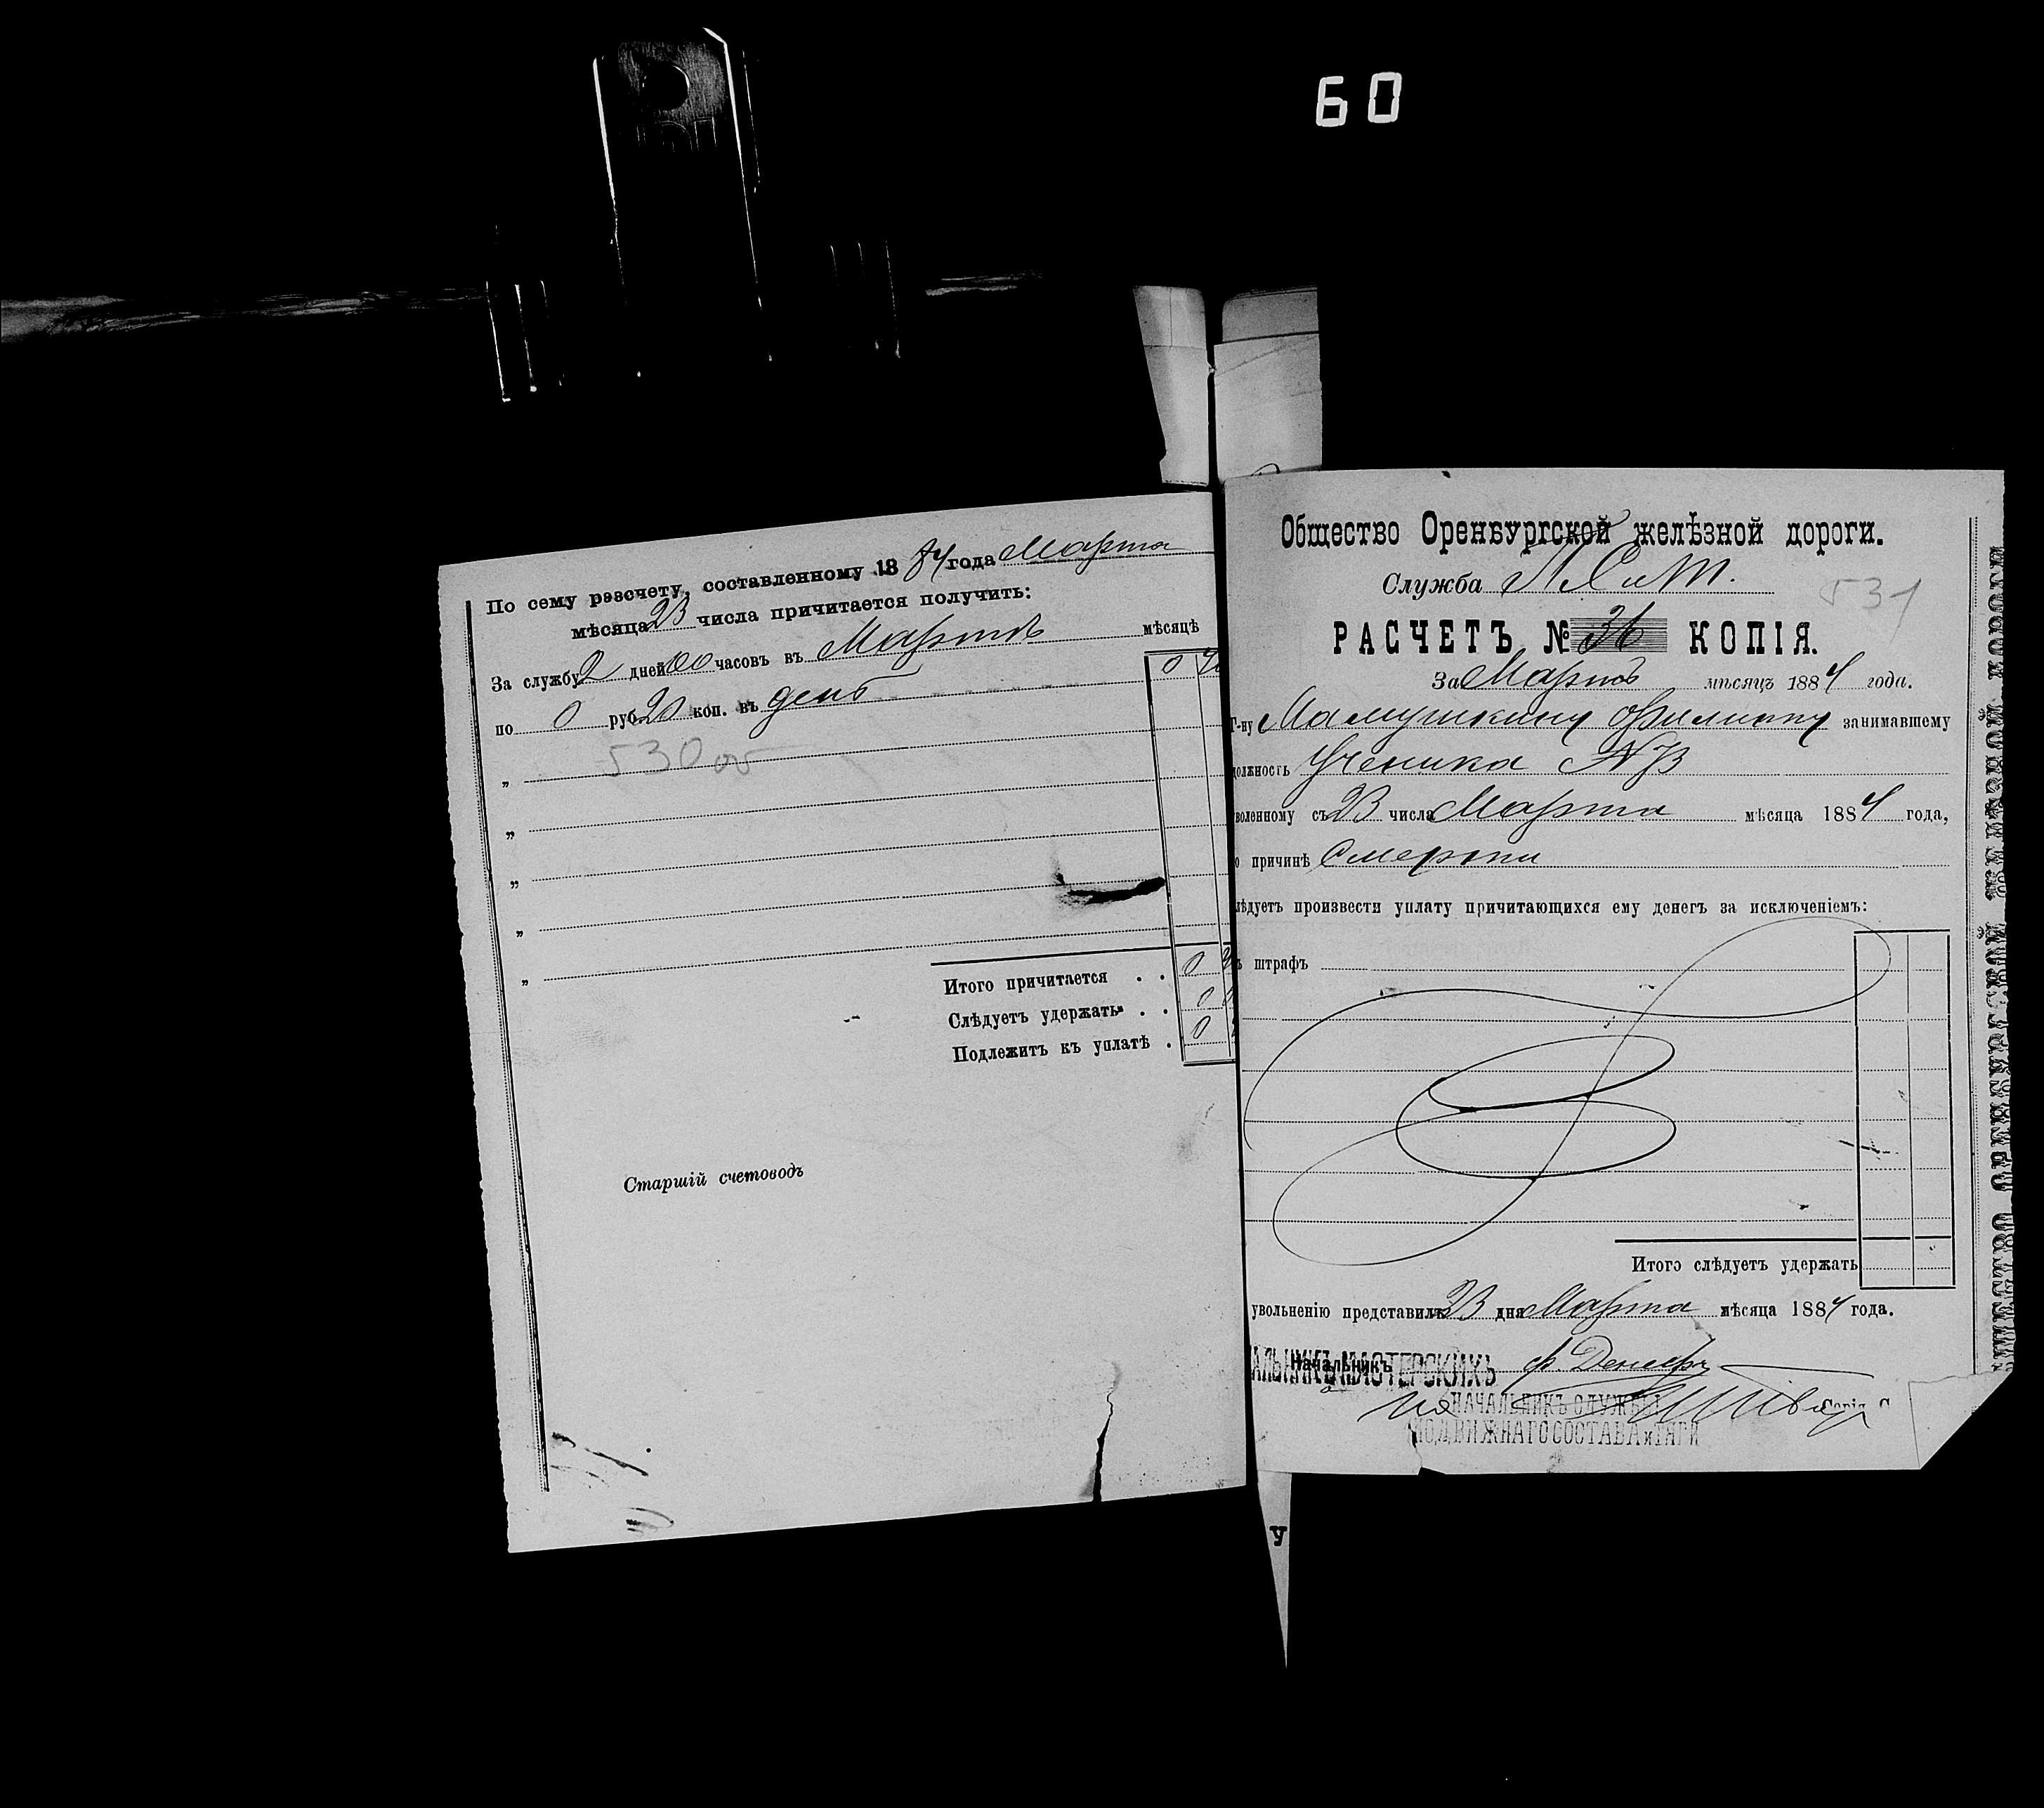 60
По сему разсчету, составленному 1884 года Марта
мѣсяца 23 числа причитается получить:
За службу 2 дней 00 часовъ въ Мартѣ мѣсяцѣ
по 0 руб. 20 коп. въ день
530 об
„
„
„
„
„
Итого причитается . . 0
Слѣдуетъ удержать . . 0
Подлежитъ къ уплатѣ . 0
Старшій счетоводъ
Общество Оренбургской желѣзной дороги.
Служба П.С. и Т.
531
РАСЧЕТЪ № 36 КОПІЯ.
За Мартъ мѣсяцъ 1884 года.
Г-ну Мамушкину Филиппу занимавшему
должность Ученика №
воленному съ 23 числа Марта мѣсяца 1884 года,
о причинѣ Смерти
лѣдуетъ произвести уплату причитающихся ему денегъ за исключеніемъ:
ъ штрафъ
Итого слѣдуетъ удержать
увольненію представилъ 23 дня Марта мѣсяца 1884 года.
АЛЬНИКЪ МАСТЕРСКИХЪ
Начальникъ
НАЧАЛЬНИКЪ СЛУЖБЫ
ПОДВИЖНАГО СОСТАВА и ТЯГИ
Серія С
ОБЩЕСТВО ОРЕНБУРГСКОЙ ЖЕЛѢЗНОЙ ДОРОГИ
У